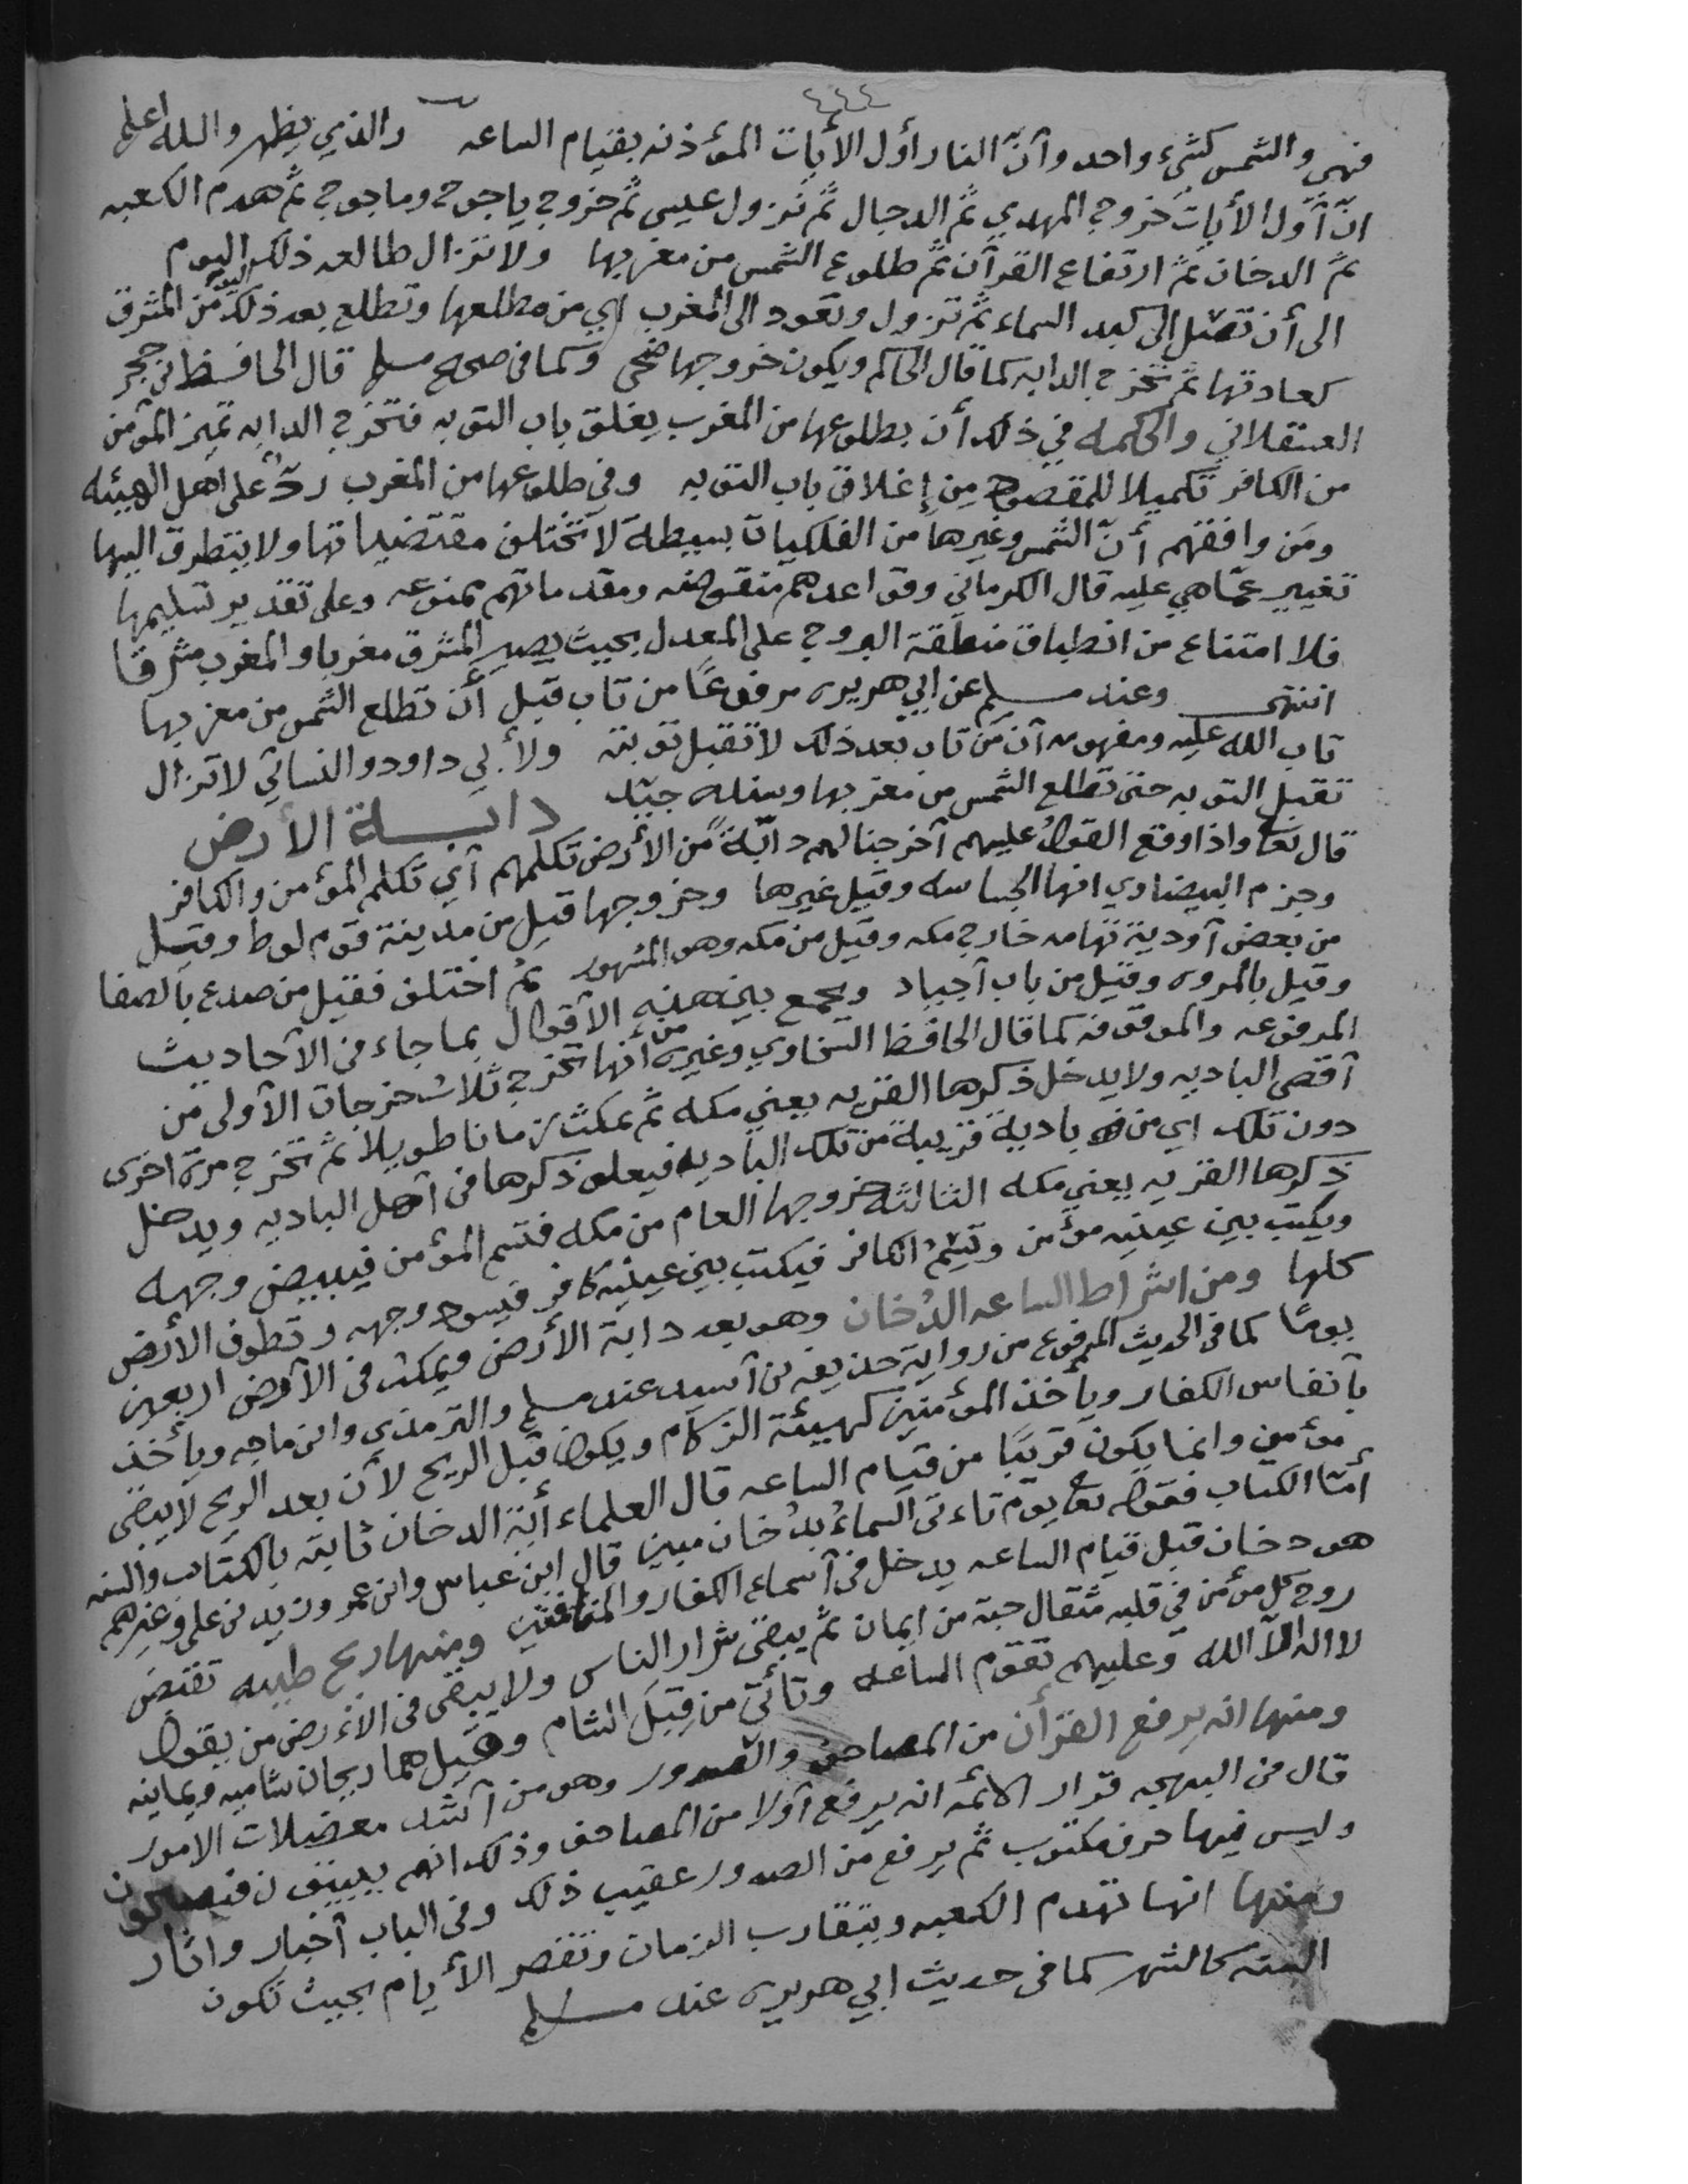 ٤٤٤
فهي والشمس كشيء واحد وأنّ النار أول الأيات المؤذنه بقيام الساعه والذي يظهر والله اعلم
انّ أول الأيات خروج المهدي ثم الدجال ثم نزول عيسى ثم خروج ياجوج وماجوج ثم هدم الكعبه
ثم الدخان ثم ارتفاع القرآن ثم طلوع الشمس من مغربها ولا تزال طالعه ذلك اليوم
الى أن تصل الى كبد السماء ثم تزول وتعود الى المغرب اي من مطلعها وتطلع بعد ذلك من المشرق
كعادتها ثم تخرج الدابه كما قال الحاكم ويكون خروجها ضحى وكما في صحيح مسلم قال الحافظ بن حجر
العسقلاني والحكمه في ذلك أن بطلوعها من المغرب يغلق باب التوبه فتخرج الدابه تميز المؤمن
من الكافر تكميلا للمقصود من إغلاق باب التوبه وفي طلوعها من المغرب ردّ على اهل الهيئه
ومَن وافقهم أنّ الشمس وغيرها من الفلكيات بسيطة لا تختلف مقتضياتها ولا يتطرق اليها
تغيير عمّا هي عليه قال الكرماني وقواعدهم منقوضه ومقدماتهم ممنوعه وعلى تقدير تسليمها
فلا امتناع من انطباق منطقة البروج على المعدل بحيث يصير المشرق مغربا والمغرب مشرقا
انتهى وعند مسلم عن ابي هريره مرفوعًا من تاب قبل أن تطلع الشمس من مغربها
تاب الله عليه ومفهومه أن مَن تاب بعد ذلك لا تقبل توبته ولأبي داود والنسائي لا تزال
تقبل التوبه حتى تطلع الشمس من مغربها وسنده جيّد دابة الأرض
قال تعا واذا وقع القولُ عليهم أخرجنا لهم دابّةً من الأرض تكلمهم أي تكلم المؤمن والكافر
وجزم البيضاوي انها الجساسه وقيل غيرها وخروجها قيل من مدينة قوم لوط وقيل
من بعض أودية تهامه خارج مكه وقيل من مكه وهو المشهور ثم اختلف فقيل من صدع بالصفا
وقيل بالمروه وقيل من باب أجياد ويجمع بين هذه الأقوال بما جاء في الأحاديث
المرفوعه والموقوفه كما قال الحافظ السخاوي وغيره من أنها تخرج ثلاث خرجات الأولى من
أقصى الباديه ولا يدخل ذكرها القريه يعني مكه ثم تمكث زمانا طويلا ثم تخرج مرة اخرى
دون تلك اي من بادية قريبة من تلك الباديه فيعلو ذكرها في أهل الباديه ويدخل
ذكرها القريه يعني مكه الثالثه خروجها العام من مكه فتسم المؤمن فيبيض وجهه
ويكتب بين عينيه مؤمن وتَسِمُ الكافر فيكتب بين عينيه كافر فيسود وجهه وتطوف الأرض
كلها ومن اشراط الساعه الدُخان وهو بعد دابة الأرض ويمكث في الأرض اربعين
يومًا كما في الحديث المرفوع من رواية حذيفه بن أسيد عند مسلم والترمذي وابن ماجه ويأخذ
بأنفاس الكفار ويأخذ المؤمنين كهيئة الزكام ويكون قبل الريح لأن بعد الريح لا يبقى
مؤمن وانما يكون قريبًا من قيام الساعه قال العلماء أيّة الدخان ثابته بالكتاب والسنه
أمّا الكتاب فقوله تعا يوم تاءتى السماءُ بدُخان مبين قال ابن عباس وابن عمر وزيد بن علي وغيرهم
هو دخان قبل قيام الساعه يدخل في أسماع الكفار والمنافقين ومنها ريح طيبه تقبض
روح كل مؤمن في قلبه مثقال حبة من ايمان ثم يبقى شرار الناس ولا يبقى في الأرض من يقول
لا اله الا الله وعليهم تقوم الساعه وتأتي من قِبَل الشام وقيل هما ريحان شاميه ويمانيه
ومنها انه يرفع القرأن من المصاحف والصدور وهو من أشد معضلات الامور
قال في البهجه قرار الائمه انه يرفع أولا من المصاحف وذلك انهم يبيتون فيصبحون
وليس فيها حرف مكتوب ثم يرفع من الصدور عقيب ذلك وفي الباب أخبار واثار
ومنها انها تهدم الكعبه ويتقارب الزمان وتقصر الأيام بحيث تكون
السنه كالشهر كما في حديث ابي هريره عند مسلم